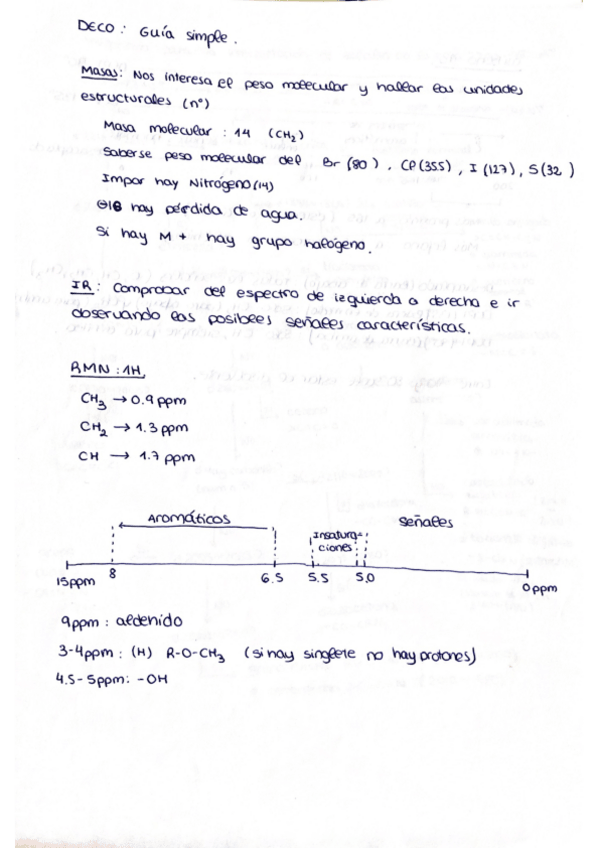 DECO: Guía simple.
Masas: Nos interesa el peso molecular y hallar las unidades
estructurales (nº)
Masa molecular: 14 (CH2)
Saberse peso molecular del Br (80), Cl (355), I (127), S (32)
Impar hay Nitrógeno (14)
18 hay pérdida de agua.
Si hay M+ hay grupo halógeno.
IR: Comprobar del espectro de izquierda a derecha e ir
observando las posibles señales características.
RMN: 1H
CH3 → 0.9 ppm
CH2 → 1.3 ppm
CH → 1.7 ppm
Aromáticos
Señales
Insatura-
ciones
15ppm 8 6.5 5.5 5.0 0ppm
9ppm: aldehído
3-4ppm: (H) R-O-CH3 (si hay singlete no hay protones)
4.5-5ppm: -OH